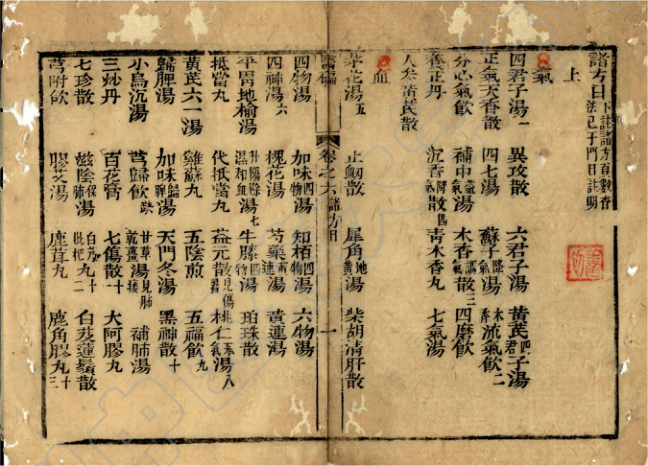 諸方目
上
氣
四君子湯一 異攻散 六君子湯 黃芪四君子湯
正氣天香散 四七湯 蘇子降氣湯 木香流氣飲二
分心氣飲 補中益氣湯 木香 散三 四磨飲
養正丹 沉香降氣散 青木香丸 七氣湯
人參黃芪散
血
茅花湯五 止衂散 犀角地黃湯 柴胡清肝散
卷之六 諸方目 一
四物湯 加味四物湯 知栢四物湯 六物湯
四神湯六 槐花湯 芍藥黃連湯 黃連湯
平胃地榆湯 牛膝四物湯 珀珠散
抵當丸 代抵當丸 益元散見傷 桃仁承氣湯八
黃芪六一湯 雞蘇丸 五陰煎 五福飲九
歸脾湯 加味歸脾湯 天門冬湯 黑神散十
小烏沉湯 芎歸飲 甘草乾薑湯見肺 補肺湯
三炒丹 百花膏 七傷散十一 大阿膠丸
七珍散 滋陰保肺湯 白及枇杷丸十二 白芨蓮鬚散
芎附飲 膠艾湯 鹿茸丸 鹿角膠丸十三